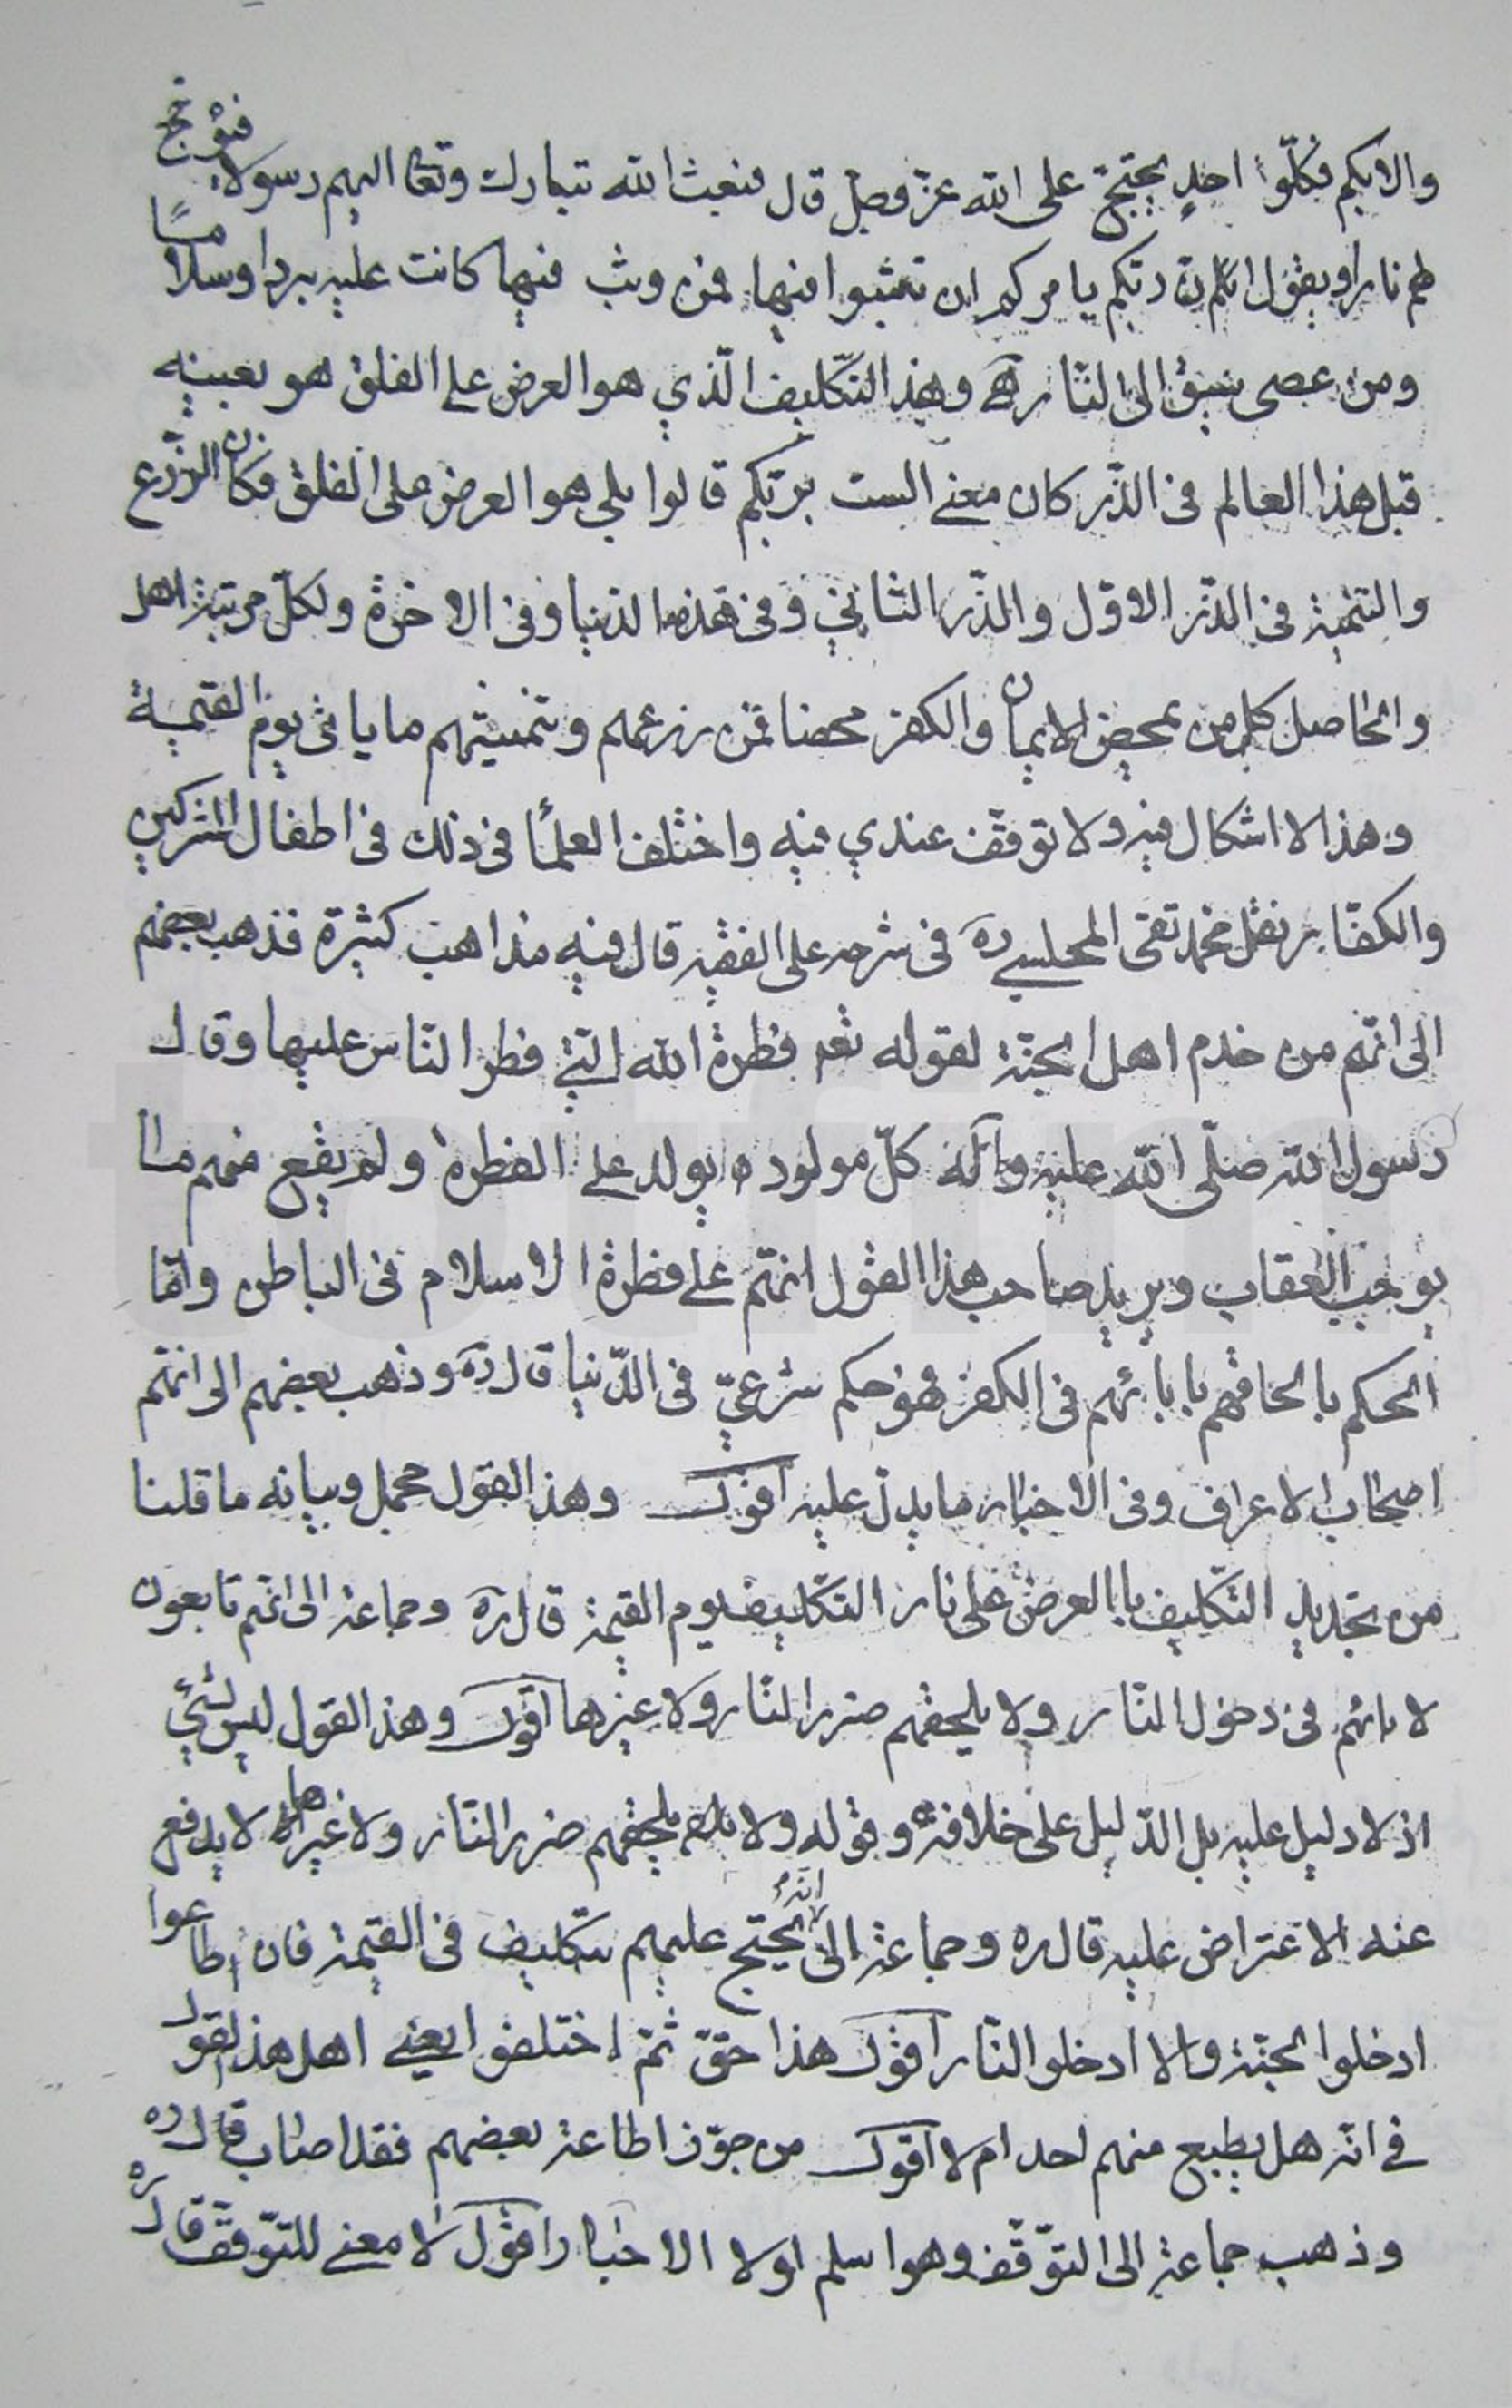 والابكم فكلّوا احدٍ يحتجّ على الله عزّ وجل قال فيبعث الله تبارك وتعا اليهم رسولا فيؤجج
لهم نارا ويقول لهم انّ ربّكم يامركم ان تثبوا فيها فمن وثب فيها كانت عليه بردا وسلامًا
ومن عصى سيق الى النّار هـ وهذ التّكليف الّذي هو العرض على الفلق هو بعينه
قبل هذا العالم فى الذّر كان معنى الست بربّكم قالوا بلى هو العرض على الفلق فكان الزّرع
والتنمية فى الذّر الاوّل والذّر الثانى وفى هذه الدنيا وفى الاخرة ولكلّ مرتبة اهل
والحاصل كل من يمحض الايمان والكفر محضا فمن زرعهم وتنميتهم ما ياتى يوم القيمة
وهذا لا اشكال فيه ولا توقّف عندي فيه واختلف العلمأ فى ذلك فى اطفال المشركين
والكفّار نقل محمد تقى المجلسى ره فى شرحه على الفقيه قال فيه مذاهب كثيرة فذهب بعضهم
الى انّهم من خدم اهل الجنّة لقوله تعه فطرة الله التى فطر النّاس عليها وقال
رسول الله صلّى الله عليه وآله كلّ مولود يولد على الفطرة ولم يقع منهم ما
يوجب العقاب ويريد صاحب هذا القول انّهم على فطرة الاسلام فى الباطن وامّا
الحكم بالحاقهم بابائهم فى الكفر فهو حكم شرعيّ فى الدّنيا قال ره وذهب بعضهم الى انّهم
اصحاب الاعراف وفى الاخبار ما يدلّ عليه اقول وهذ القول مجمل وبيانه ما قلنا
من تجديد التّكليف بالعرض على نار التكليف يوم القيمة قال ره وجماعة الى انّهم تابعون
لابائهم فى دخول النّار ولا يلحقهم ضرر النّار ولا غيرها اقول وهذ القول ليس بشئ
اذ لا دليل عليه بل الدّليل على خلافه وقوله ولا يلحقهم ضرر النّار ولا غيرها لا يدفع
عنه الاعتراض عليه قال ره وجماعة الى انّه يحتج عليهم بتكليف فى القيمة فان اطاعوا
ادخلوا الجنّة والا ادخلوا النّار اقول هذا حقّ ثمّ اختلفوا يعنى اهل هذ القول
فى انّه هل يطيع منهم احد ام لا اقول من جوّز اطاعة بعضهم فقد اصاب قال ره
وذهب جماعة الى التوّقّف وهو اسلم لولا الاخبار اقول لا معنى للتوّقّف قال ره